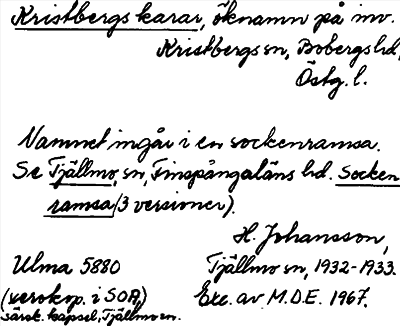 Kristbergs karar, öknamn på inv.
Kristbergs sn, Bobergs hd,
Östg. l.
Namnet ingår i en sockenramsa.
Se Tjällmo, sn, Finspångaläns hd. Socken
ramsa (3 versioner).
H. Johansson,
Ulma 5880 Tjällmo sn, 1932-1933.
(xerokop. i SOA,) Exc. av M.D.E. 1967.
särsk. kapsel, Tjällmo sn.